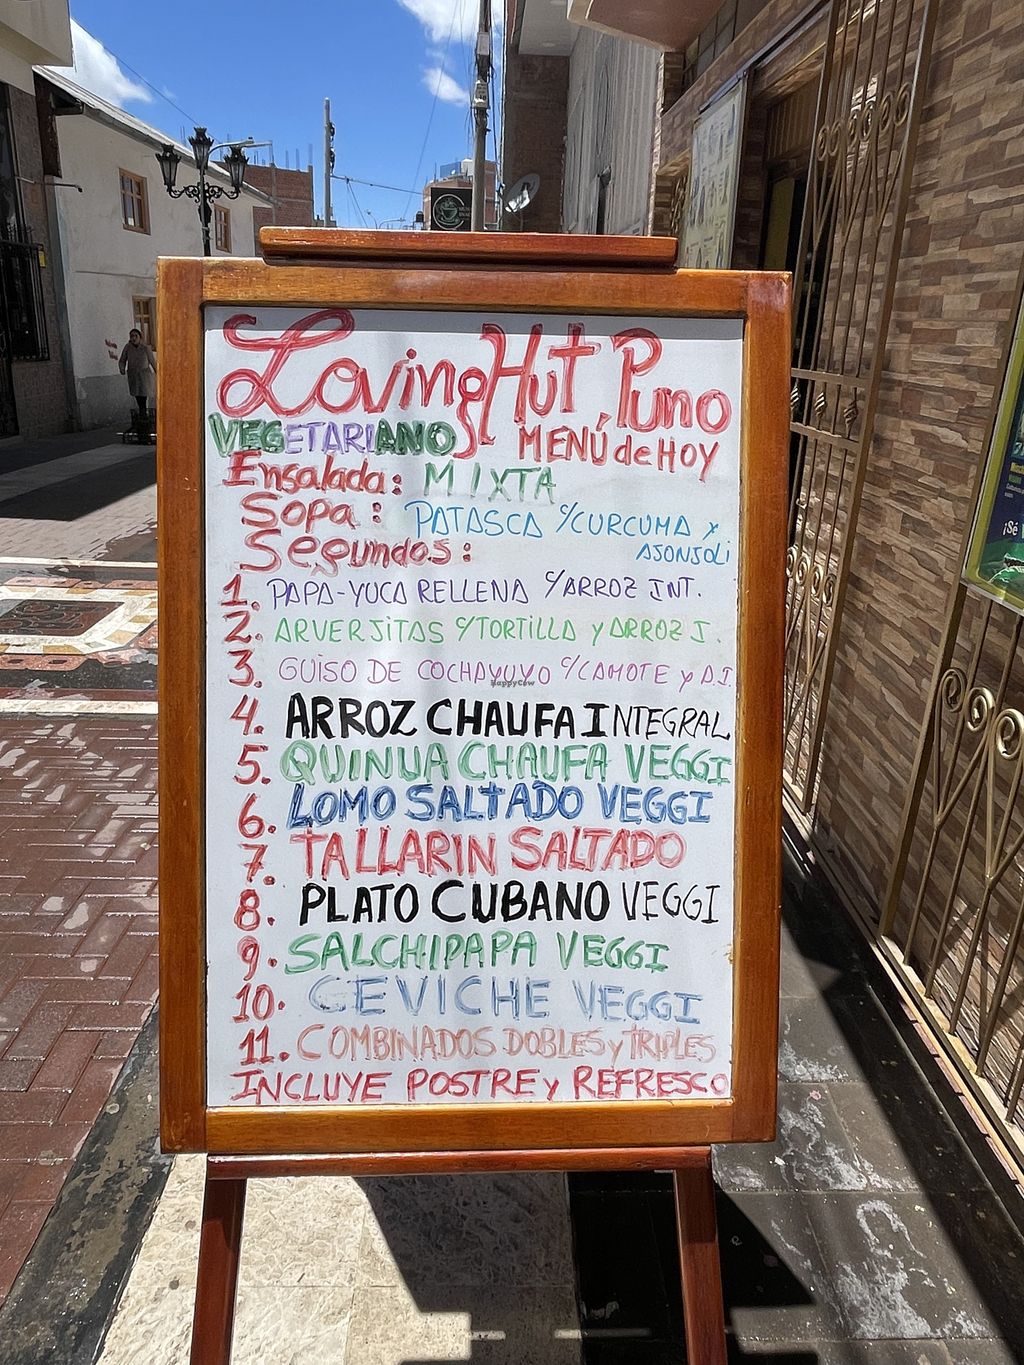 Loving Hut Puno
VEGETARIANO MENÚ de HOY
Ensalada: MIXTA
Sopa: PATASCA c/CURCUMA y
AJONJOLí
Segundos:
1. PAPA-YUCA RELLENA c/ARROZ INT.
2. ARVERJITAS c/TORTILLA y ARROZ I.
3. GUISO DE COCHAYUYO c/CAMOTE y A.I
HappyCow
4. ARROZ CHAUFA INTEGRAL
5. QUINUA CHAUFA VEGGI
6. LOMO SALTADO VEGGI
7. TALLARIN SALTADO
8. PLATO CUBANO VEGGI
9. SALCHIPAPA VEGGI
10. CEVICHE VEGGI
11. COMBINADOS DOBLES y TRIPLES
INCLUYE POSTRE y REFRESCO
¡Sé